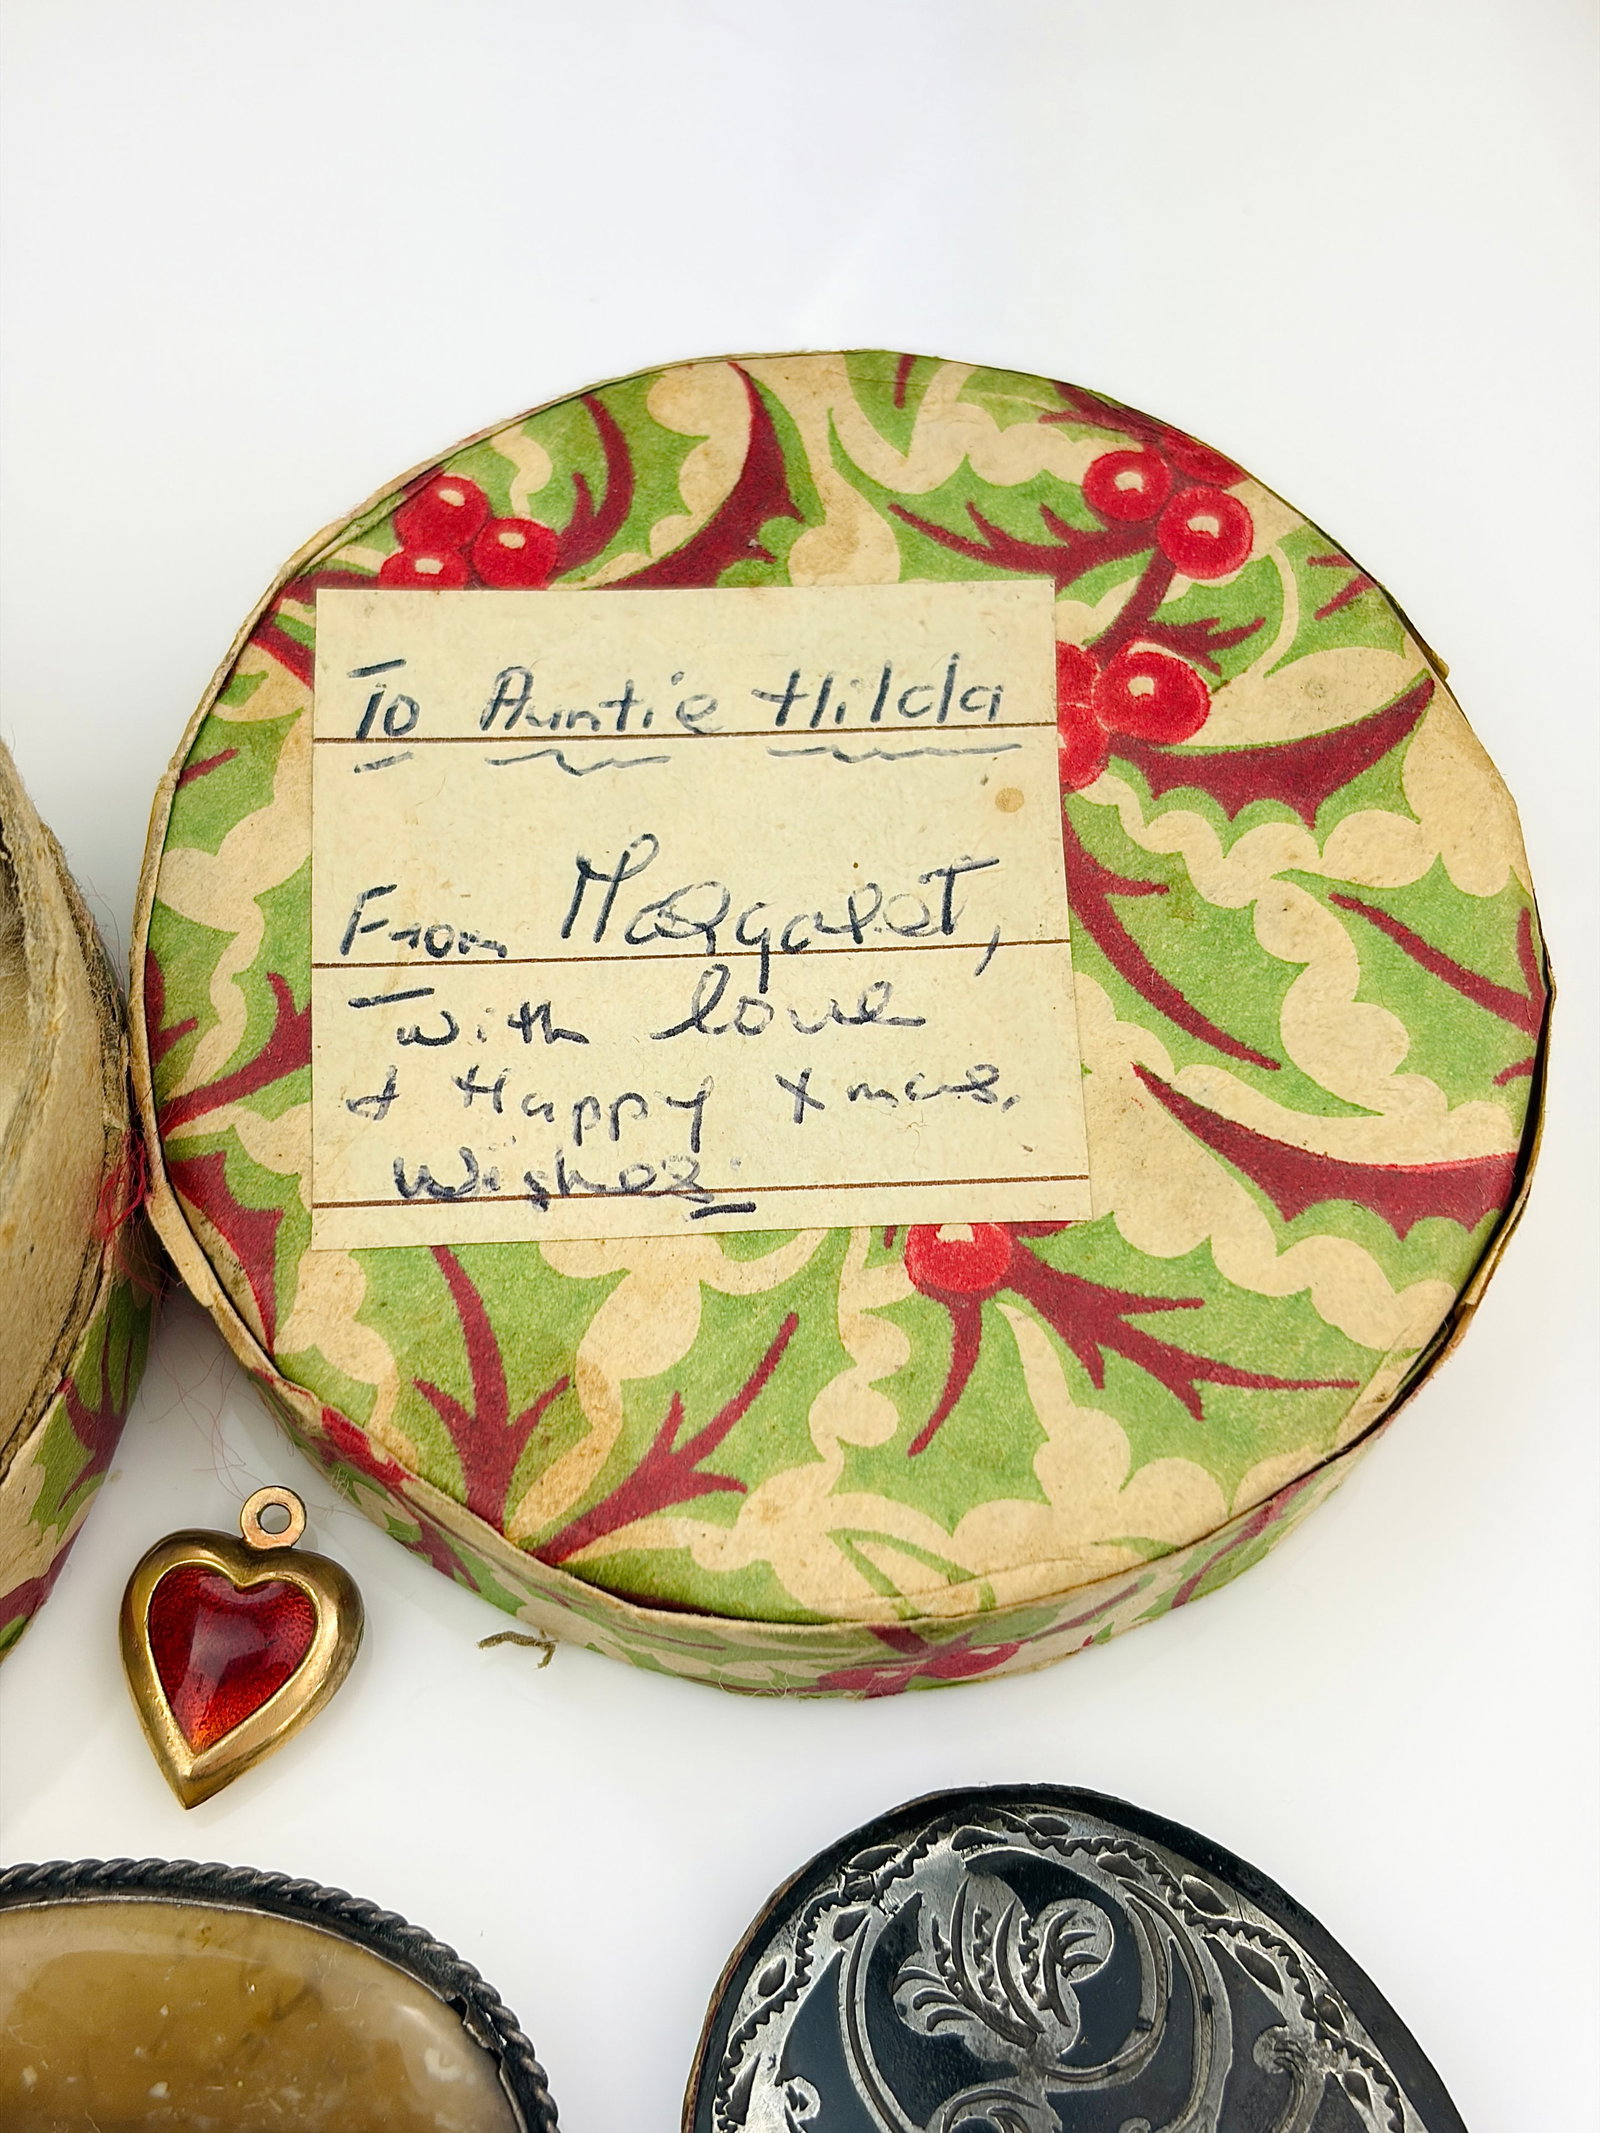 To Auntie Hilda
From Margaret,
with love
& Happy Xmas.
Wishes.